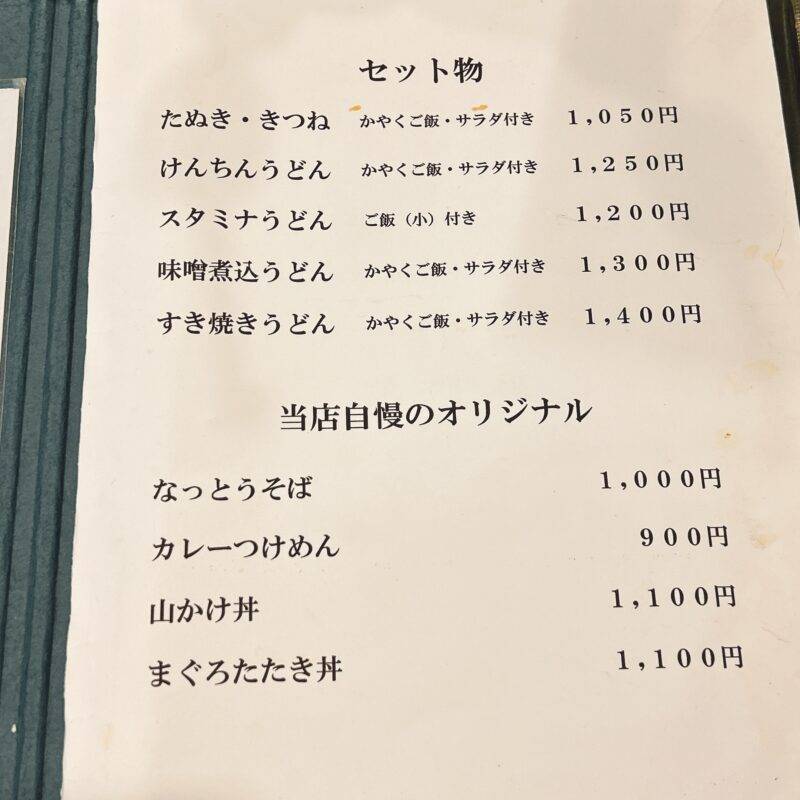 セット物
たぬき・きつね かやくご飯・サラダ付き 1,050円
けんちんうどん かやくご飯・サラダ付き 1,250円
スタミナうどん ご飯（小）付き 1,200円
味噌煮込うどん かやくご飯・サラダ付き 1,300円
すき焼きうどん かやくご飯・サラダ付き 1,400円
当店自慢のオリジナル
なっとうそば 1,000円
カレーつけめん 900円
山かけ丼 1,100円
まぐろたたき丼 1,100円